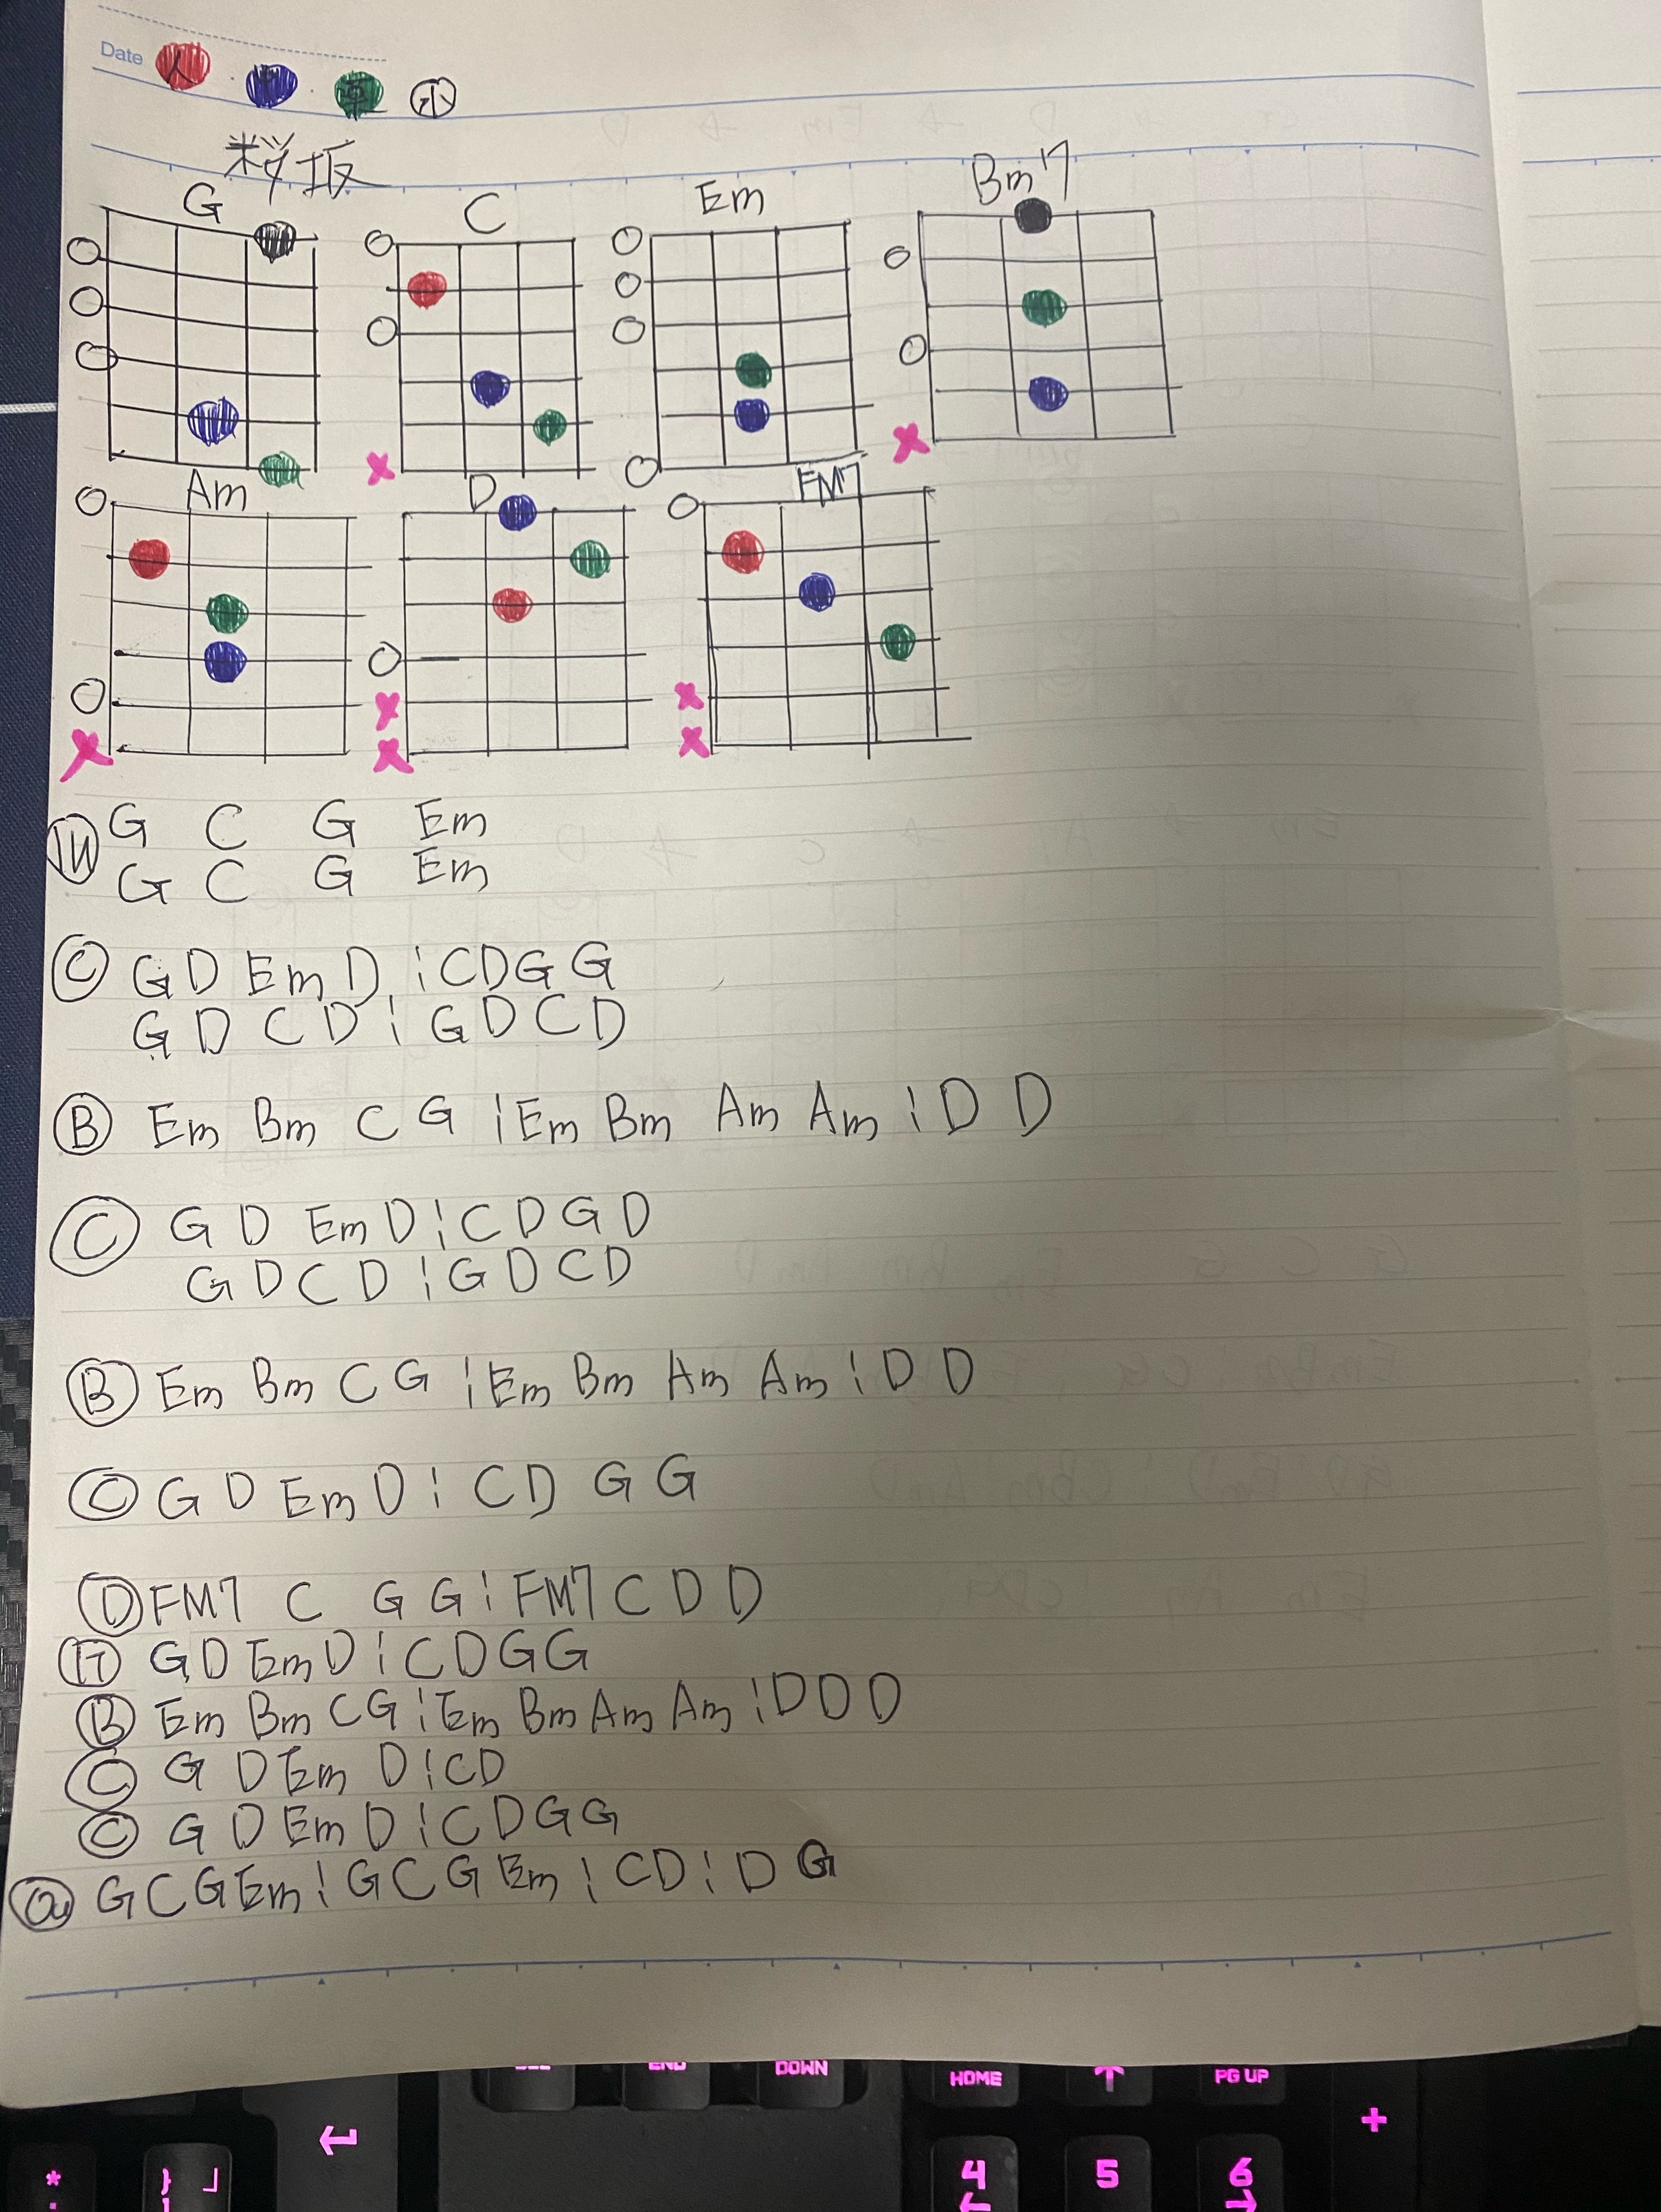 Date 人 中 薬 小
桜坂
G C Em Bm7
Am D FM7
G C G Em
G C G Em
C G D Em D ¦ C D G G
G D C D ¦ G D C D
B Em Bm C G ¦ Em Bm Am Am ¦ D D
C G D Em D ¦ C D G D
G D C D ¦ G D C D
B Em Bm C G ¦ Em Bm Am Am ¦ D D
C G D Em D ¦ C D G G
D FM7 C G G ¦ FM7 C D D
G D Em D ¦ C D G G
B Em Bm C G ¦ Em Bm Am Am ¦ D D D
C G D Em D ¦ C D
C G D Em D ¦ C D G G
G C G Em ¦ G C G Em ¦ C D ¦ D G
END DOWN HOME ↑ PG UP
↵ +
* } 」 4 5 6
← →